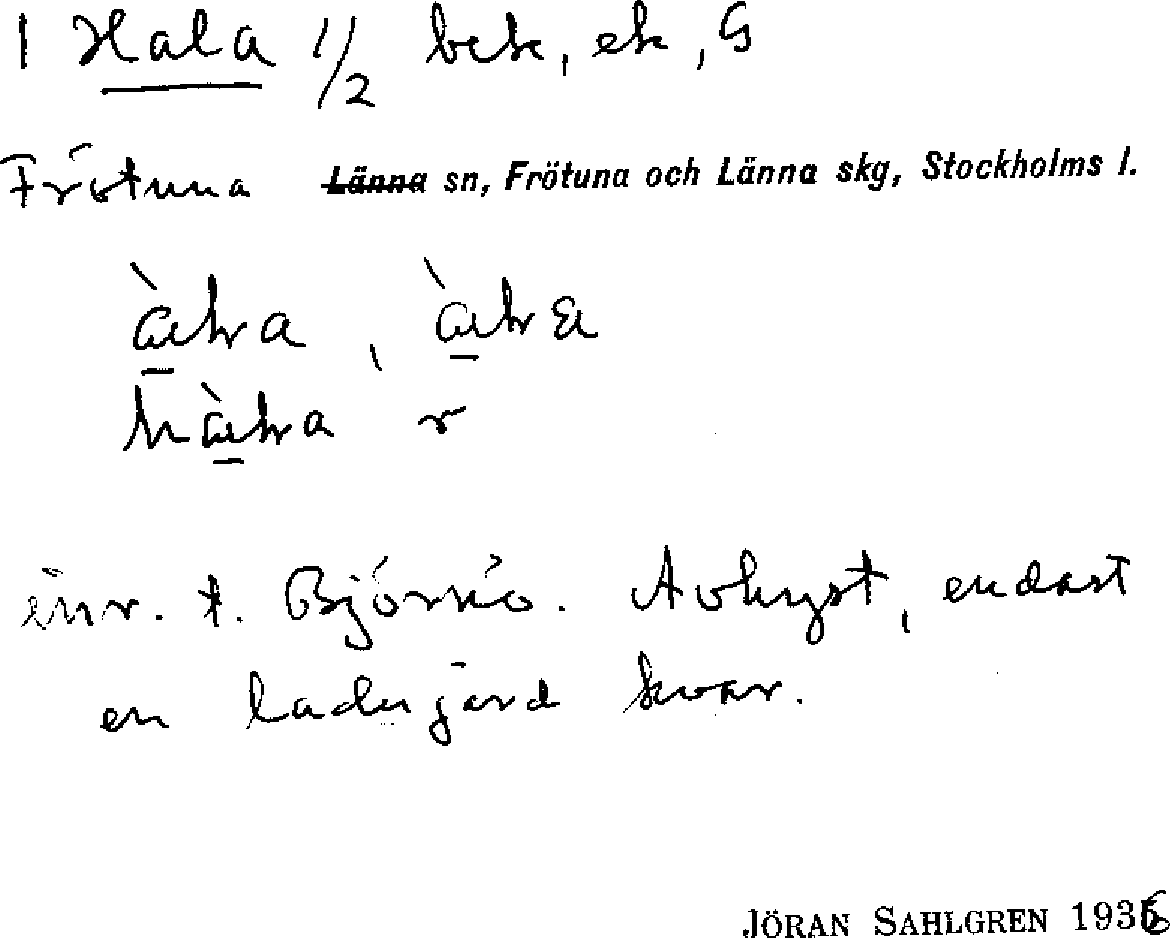 1 Hala 1/2 bek, ek, G
Frötuna Länna sn, Frötuna och Länna skg, Stockholms l.
inr. t. Björkö. Avhyst, endast
en ladugård kvar.
JÖRAN SAHLGREN 1936